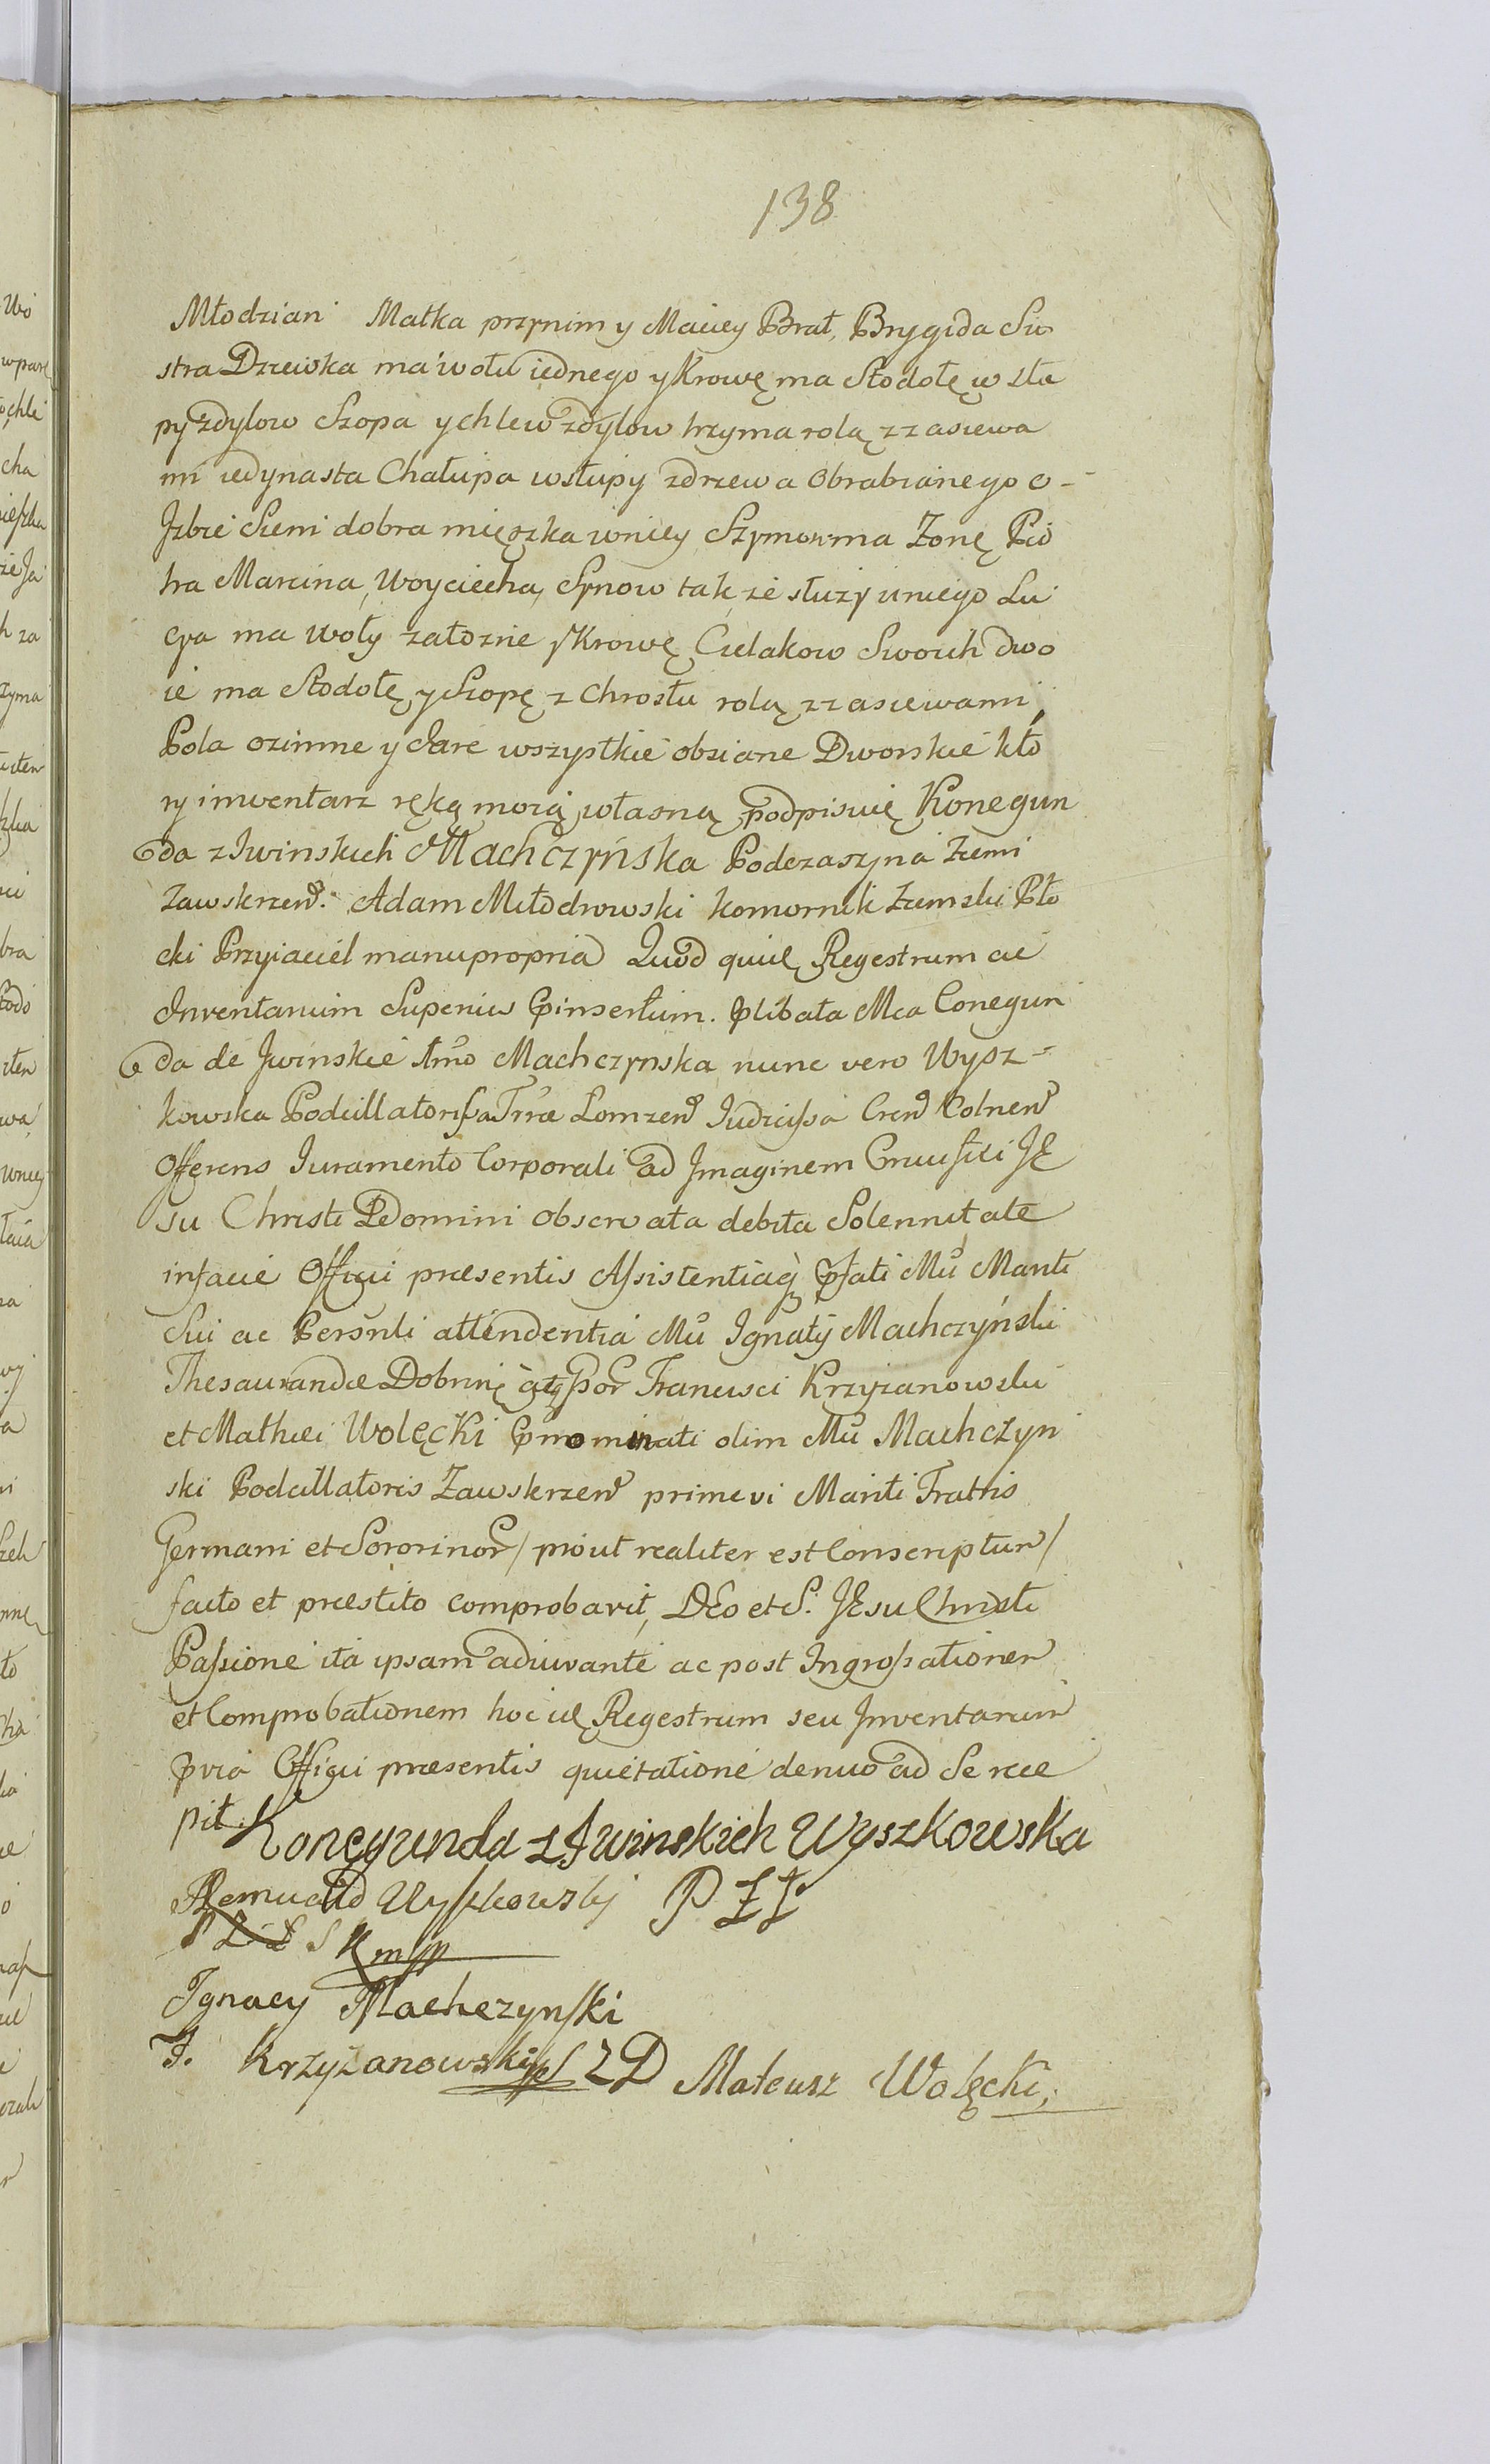 138
Młodziani Matka przynim y Maciey Brat, Brygida Sio
stra Dziewka ma wołu iednego y Krowę ma Stodołę w słu
py zdylow Szopa y chlew zdylow trzyma rolą z zasiewa
mi iedynasta Chałupa w słupy z drzewa Obrabianego o-
Izbie Sieni dobra mięszka wniey Szymon ma Zonę Pio
tra Marcina, Woyciecha, Synow także słuzy uniego Łu
cya ma woły załozne y Krowę Cielakow Swoich dwo
ie ma Stodołę y Szopę z Chrostu rolą z zasiewami,
Pola ozimne y Jare wszystkie obsiane Dworskie kto
ry inwentarz ręką moią własną podpisuię Konegun
da z Iwinskich Machczyńska Podczaszyna Ziemi
Zawskrzen: Adam Młodzowski Komornik Ziemski Pło
cki Przyiaciel manu propria Quod quidę Regestrum ac
Inventarium Superius Insertum. Plibata Mca Conegun
da de Iwinskie 1mo Machczynska nunc vero Wysz=
kowska Podcillatorissa Trrae Lomzen Iudicissa Cren Colnen
Offerens Iuramento Corporali ad Imaginem Crucifixi JE
su Christi Domini observata debita Solennitate
infacie Officii praesentis Assistentiaq pfati Mci Mariti
Sui ac Persnli attendentia Mci Ignatij Machczyński
Thesaurandae Dobrinę atq Gor Francisci Krzyzanowski
et Mathei Wolęcki Pnominati olim Mci Machczyn
ski Podcillatoris Zawskrzen primevi Mariti Fratris
Germani et Sororinor / prout realiter est Conscriptum /
facto et praestito comprobavit, DEo et S. JEsu Christi
Passione ita ipsam adiuvante ac post Ingrossationem
et Comprobationem hocce Regestrum seu Inventarium
pvia Officii praesentis quietatione denuo ad Se rece
pit. Konegunda z Iwinskich Wyszkowska
Romuald Wyszkowsky P Z Ł
S K mpp
Ignacy Machczynski
F. Krzyżanowski S Z D Mateusz Wolęcki,